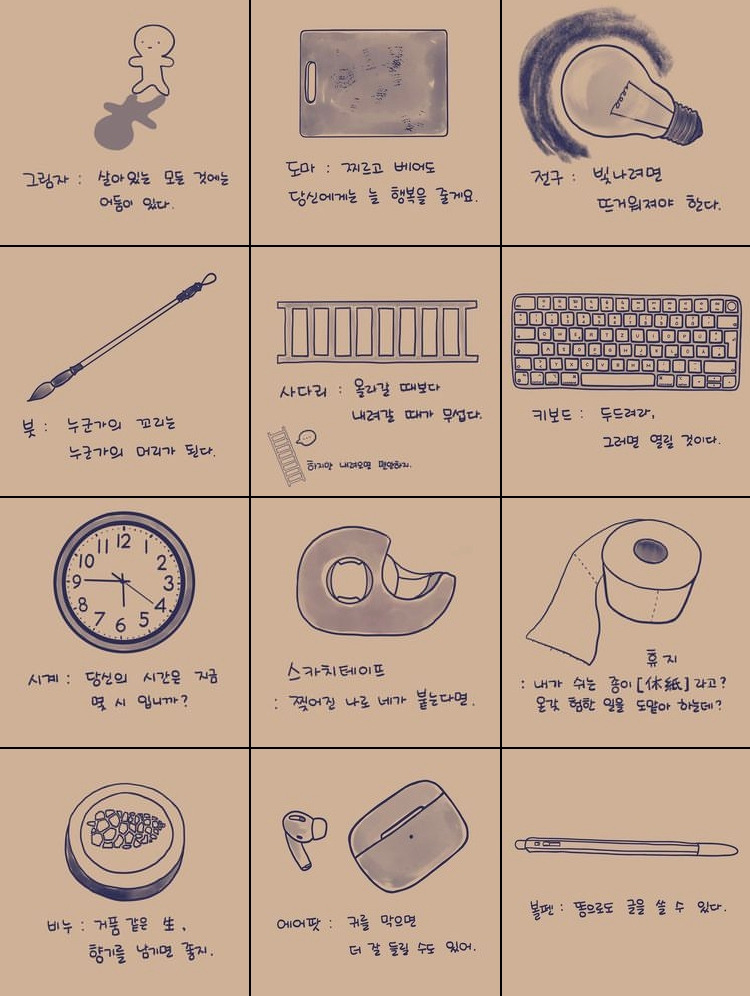 그림자 : 살아있는 모든 것에는
어둠이 있다.
도마 : 찌르고 베어도
당신에게는 늘 행복을 줄게요.
전구 : 빛나려면
뜨거워져야 한다.
붓 : 누군가의 꼬리는
누군가의 머리가 된다.
사다리 : 올라갈 때보다
내려갈 때가 무섭다.
하지만 내려오면 편안하지.
키보드 : 두드려라,
그러면 열릴 것이다.
12
1
2
3
4
5
6
7
8
9
10
11
시계 : 당신의 시간은 지금
몇 시 입니까?
스카치테이프
: 찢어진 나로 네가 붙는다면.
휴지
: 내가 쉬는 종이[休紙]라고?
온갖 험한 일을 도맡아 하는데?
비누 : 거품 같은 生,
향기를 남기면 좋지.
에어팟 : 귀를 막으면
더 잘 들릴 수도 있어.
볼펜 : 똥으로도 글을 쓸 수 있다.